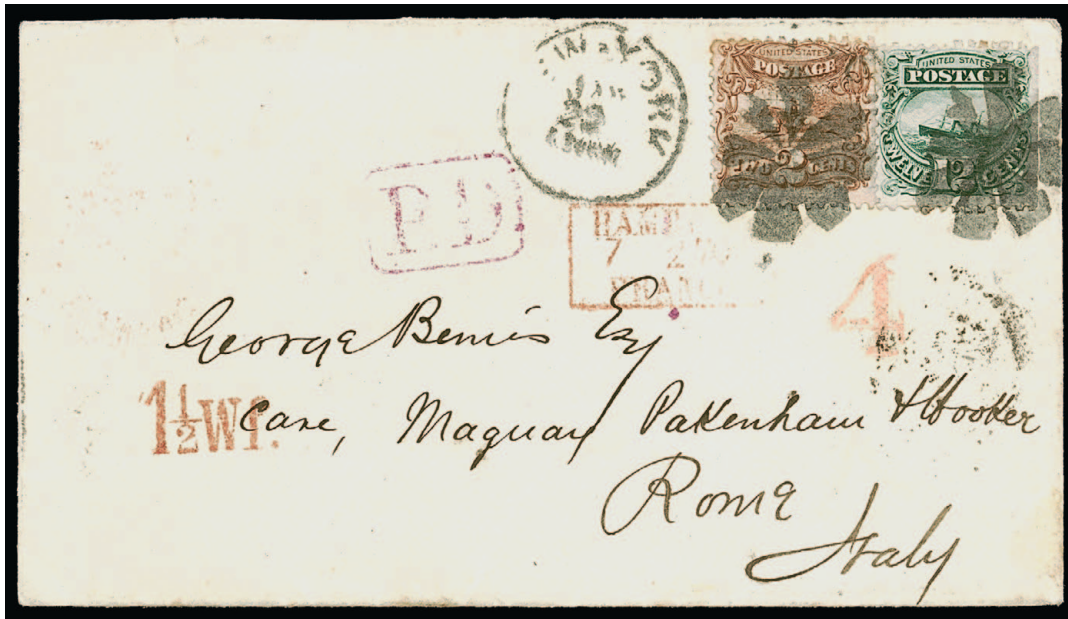 NEW YORK
JAN
UNITED STATES
POSTAGE
TWO 2 CENTS
UNITED STATES
POSTAGE
TWELVE 12 CENTS
P.D
7
4
George Bemis Esq
1½ Wf.
Care, Maquay Pakenham & Hooker
Rome
Italy